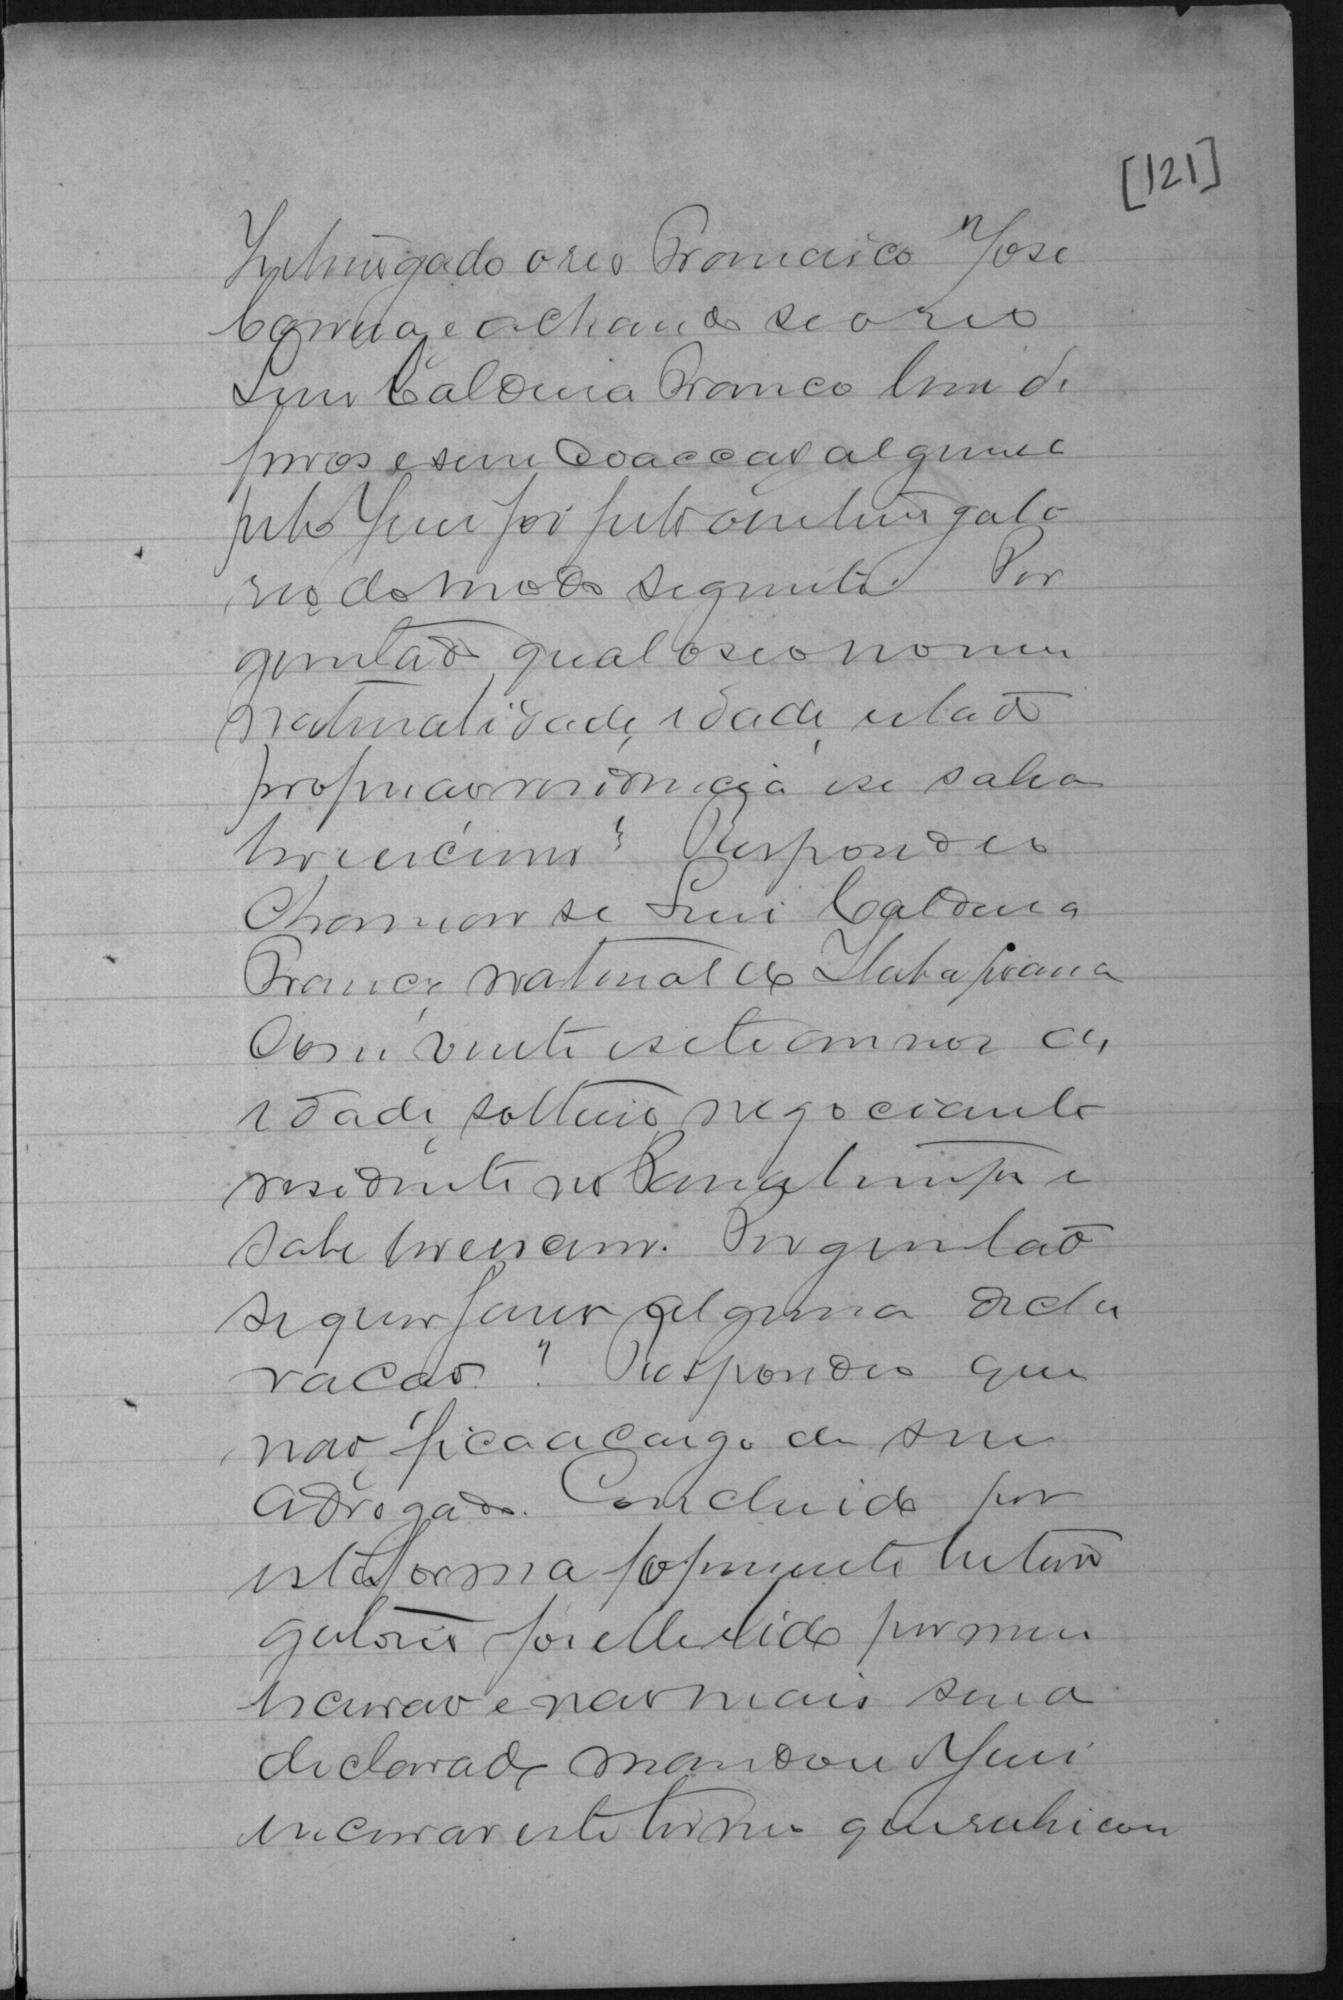 [121]
Interrogado o reo Francisco José
Correia, e achando se o reo
Luiz Caldeira Franco livre de
ferros e sem coacção alguma
pelo Juiz foi feito o interrogato
rio do modo seguinte. Per
guntado qual o seo nome
naturalidade, idade, estado
profissão residencia e se sabia
ler e escrever? Respondeo
chamar se Luiz Caldeira
Franco, natural de Itabapoana
com vinte e sete annos de
idade, solteiro, negociante
residente no e
sabe ler e escrever. Perguntado
se quer fazer alguma decla
ração? Respondeo que
não, fica a cargo de seu
advogado. Concluido por
esta forma o presente interro
gatorio foi elle lido por mim
escrivão e nao mais sendo
declarado mandou o Juiz
encerrar este termo que rubricou